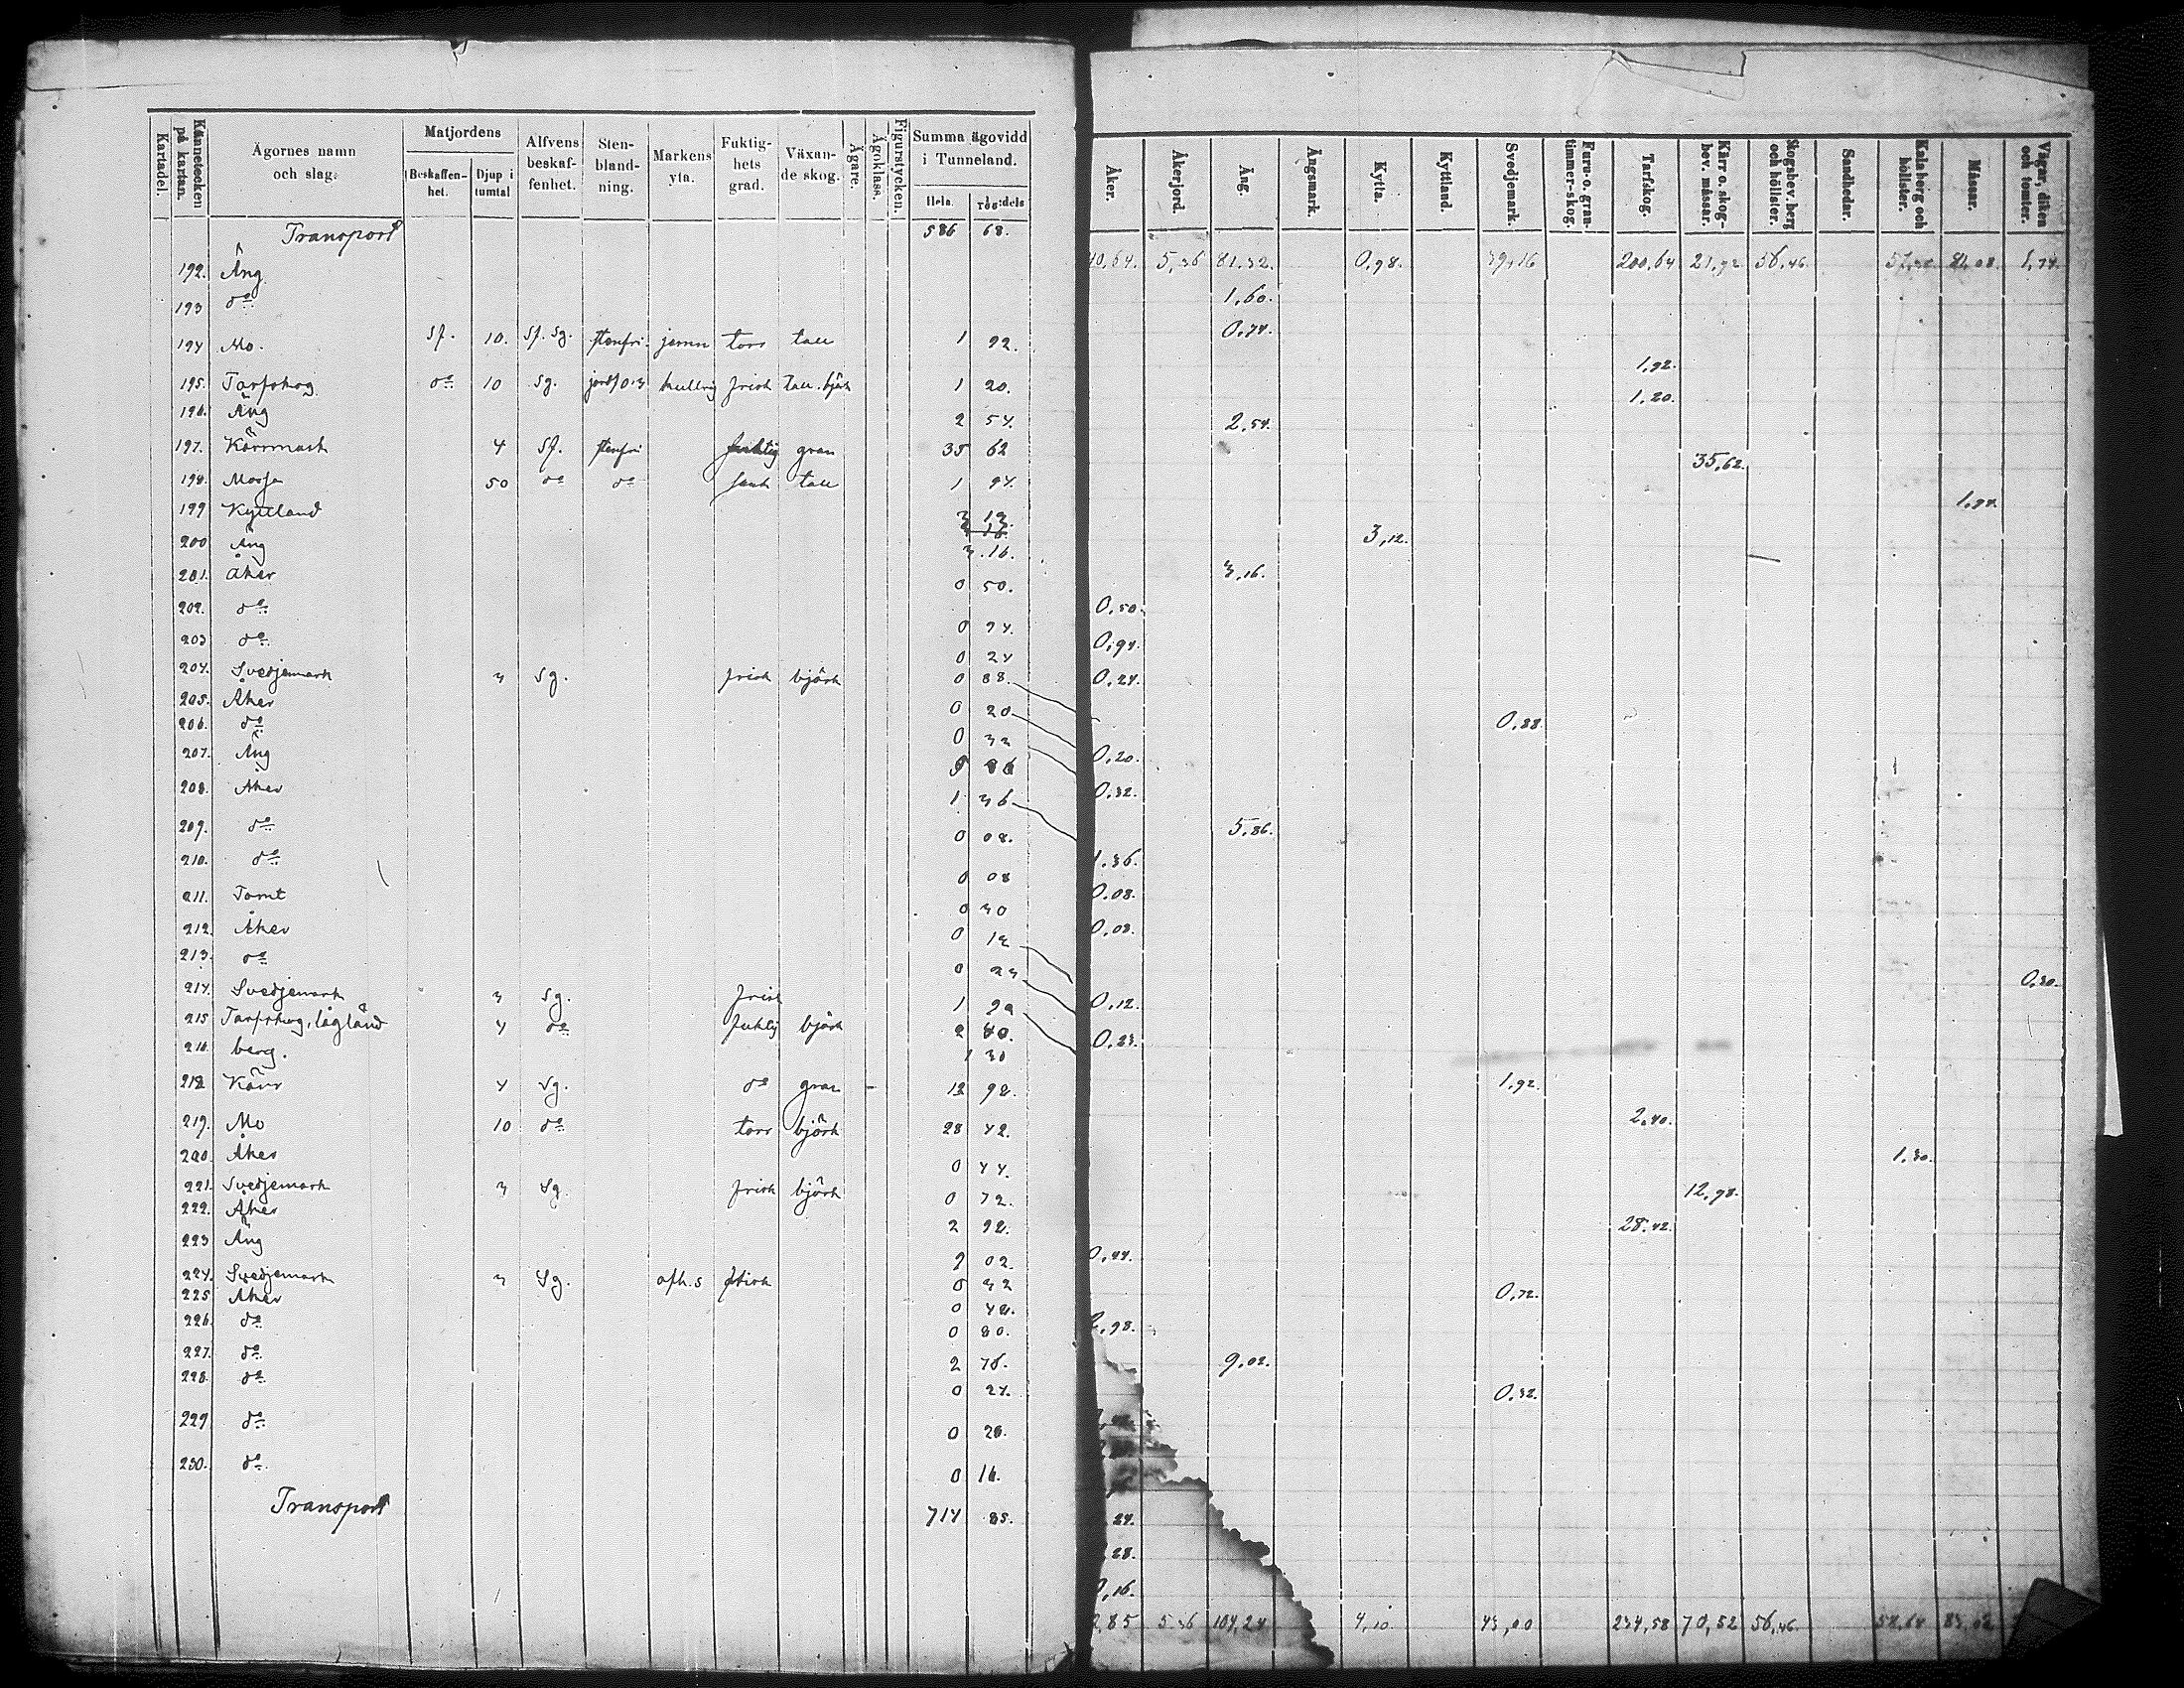 Kartadel. Kännetecken på kartan. Ägornes namn och slag. Matjordens Beskaffenhet. Djup i tumtal Alfvens beskaffenhet. Stenblandning. Markens yta. Fuktighets grad. Växande skog. Ägare. Ägoklass. Figurstycken. Summa ägovidd i Tunneland. Hela. 1/100:dels
Transport 586 68.
192. Äng
193 do
194 Mo. Sf. 10. Sf. Sg. stenfri jemn torr tall 1 92.
195. Tarfskog do 10 Sg. kullrig frisk Tall. björk 1 20.
196. Äng 2 54.
197. Kärrmark 4 Sf. stenfri fuktig gran 35 62
198. Mossa 50 do do sank tall 1 94.
199 Kyttland 3 12.
200 Äng 3.16.
201. Åker 0 50.
202. do 0 94.
203 do 0 24
204. Svedjemark 3 Sg. frisk björk 0 88.
205. Åker 0 20
206. do 0 32
207. Äng 5 86
208. Åker 1 36
209. do 0 08.
210. do 0 08
211. Tomt 0 30
212. Åker 0 12
213. do 0 23
214. Svedjemark 3 Sg. frisk 1 92
215 Tarfskog, lågländ 4 do fuktig björk 2 40.
216 berg. 1 30
218 Kärr 4 Sg. do gran 12 98.
219. Mo 10 do torr björk 28 42.
220. Åker 0 44.
221. Svedjemark 3 Sg. frisk björk 0 72.
222. Åker 2 98.
223 Äng 9 02.
224. Svedjemark 3 Sg. frisk 0 32
225 Åker 0 42.
226. do 0 80.
227. do 2 76.
228. do 0 24.
229 do 0 28.
230. do 0 16.
Transport 714 85.
Åker. Åkerjord. Äng. Ängsmark. Kytta. Kyttland. Svedjemark. Furu- o. grantimmer-skog. Tarfskog. Kärr o. skogbev. måssar. Skogsbev. berg och höllster. Sandhedar. Kala berg och höllster. Måssar. Vägar, diken och tomter.
40,64. 5,36 81.32. 0,98. 39,16 200,64 21,92 56,46. 81,08. 1,74.
1,60.
0,74.
1,92.
1,20.
2,54.
35,62.
1,94.
3,12.
3,16.
0,50.
0,94.
0,24.
0,88.
0,20.
0,32.
5,86.
1.36.
0.08.
0,08.
0,30.
0,12.
0,23.
1,92.
2,40.
1.30.
12,98.
28.42.
0,44.
0,72.
2,98.
9,02.
0,32.
24.
28.
0,16.
2,85 5.36 104,24 4,10. 43,00 234,58 70,52 56,46. 58,64 83,02